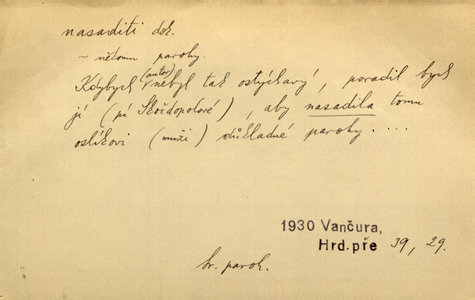 nasaditi dok.
~ někomu parohy.
Kdybych (autor) nebyl tak ostýchavý, poradil bych
jí (pí Skočdopolové), aby nasadila tomu
oslíkovi (muži) důkladné parohy. ...
1930 Vančura,
Hrd. pře 39, 29.
hv. paroh.